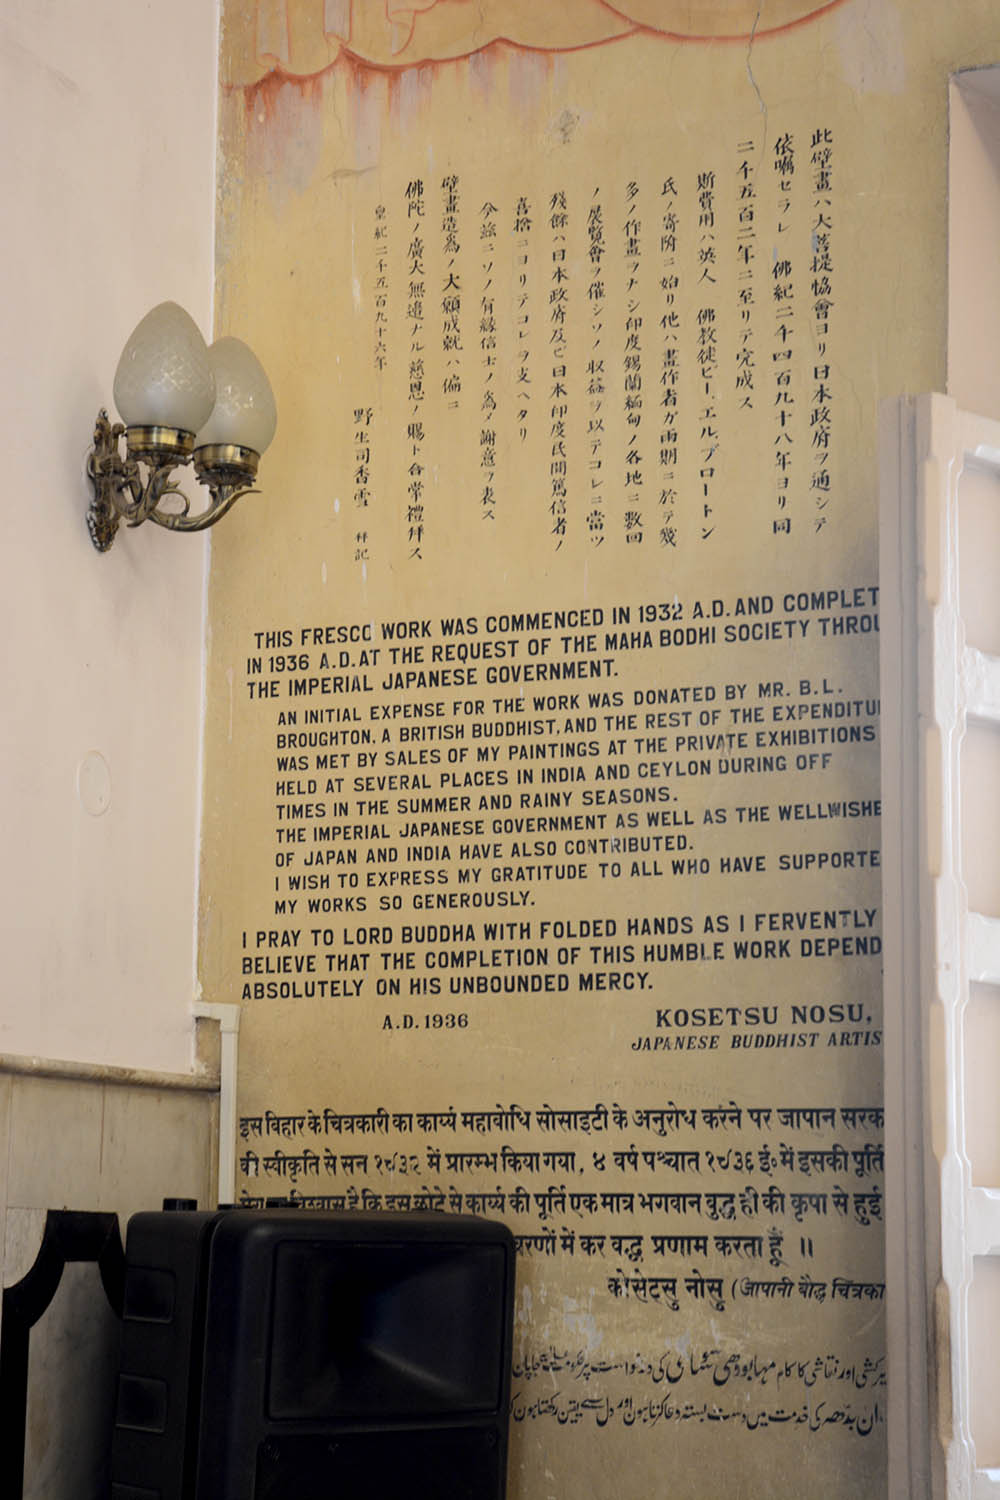 此壁畫ハ大菩提協會ヨリ日本政府ヲ通シテ
依囑セラレ 佛紀二千四百九十八年ヨリ同
二千五百二年ニ至リテ完成ス
斯費用ハ英人 佛教徒ビー.エル.ブロートン
氏ノ寄附ニ始リ他ハ畫作者ガ雨期ニ於テ幾
多ノ作畫ヲナシ印度錫蘭緬甸ノ各地ニ數回
ノ展覧會ヲ催シソノ収益ヲ以テコレニ當ツ
残餘ハ日本政府及ビ日本印度氏間篤信者ノ
喜捨ニヨリテコレヲ支ヘタリ
今茲ニソノ有縁信士ノ為メ謝意ヲ表ス
壁畫造為ノ大願成就ハ偏ニ
佛陀ノ廣大無邊ナル慈恩ノ賜ト合掌禮拜ス
皇紀二千五百九十六年
野生司香雪 拜記
THIS FRESCO WORK WAS COMMENCED IN 1932 A.D. AND COMPLET
IN 1936 A.D. AT THE REQUEST OF THE MAHA BODHI SOCIETY THROU
THE IMPERIAL JAPANESE GOVERNMENT.
AN INITIAL EXPENSE FOR THE WORK WAS DONATED BY MR. B.L.
BROUGHTON, A BRITISH BUDDHIST, AND THE REST OF THE EXPENDITU
WAS MET BY SALES OF MY PAINTINGS AT THE PRIVATE EXHIBITIONS
HELD AT SEVERAL PLACES IN INDIA AND CEYLON DURING OFF
TIMES IN THE SUMMER AND RAINY SEASONS.
THE IMPERIAL JAPANESE GOVERNMENT AS WELL AS THE WELLWISHE
OF JAPAN AND INDIA HAVE ALSO CONTRIBUTED.
I WISH TO EXPRESS MY GRATITUDE TO ALL WHO HAVE SUPPORTE
MY WORKS SO GENEROUSLY.
I PRAY TO LORD BUDDHA WITH FOLDED HANDS AS I FERVENTLY
BELIEVE THAT THE COMPLETION OF THIS HUMBLE WORK DEPEND
ABSOLUTELY ON HIS UNBOUNDED MERCY.
A.D. 1936
KOSETSU NOSU,
JAPANESE BUDDHIST ARTIS
इस विहार के चित्रकारी का कार्य्य महाबोधि सोसाइटी के अनुरोध करने पर जापान सरक
की स्वीकृति से सन १९३२ में प्रारम्भ किया गया, ४ वर्ष पश्चात १९३६ ई० में इसकी पूर्ति
विश्वास है कि इस छोटे से कार्य्य की पूर्ति एक मात्र भगवान वुद्ध ही की कृपा से हुई
चरणों में कर वद्ध प्रणाम करता हूँ ॥
कोसेट्सु नोसु (जापानी बौद्ध चित्रका
کشی اور نقاشی کا کام مہابودھی کی درخواست پر جاپان
ان بدھ کی خدمت میں دست بستہ دعا کرتا ہوں اور دل سے یقین رکھتا ہوں